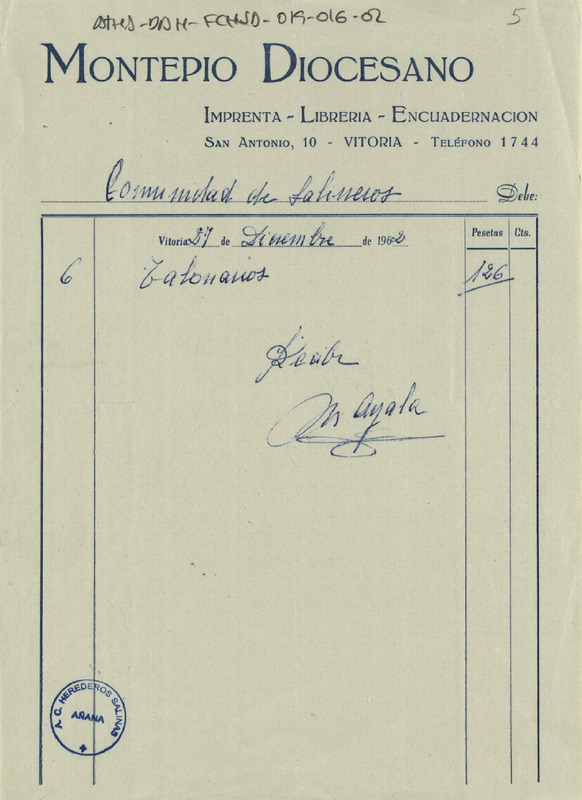 ATHA-DAH-FCHSD-019-016-02
5
MONTEPIO DIOCESANO
IMPRENTA - LIBRERIA - ENCUADERNACION
SAN ANTONIO, 10 - VITORIA - TELÉFONO 1744
Comunidad de Salineros Debe:
Vitoria 27 de Diciembre de 1962 Pesetas Cts.
6 Talonarios 126
Recibí
Ayala
A. C. HEREDEROS SALINAS
AÑANA